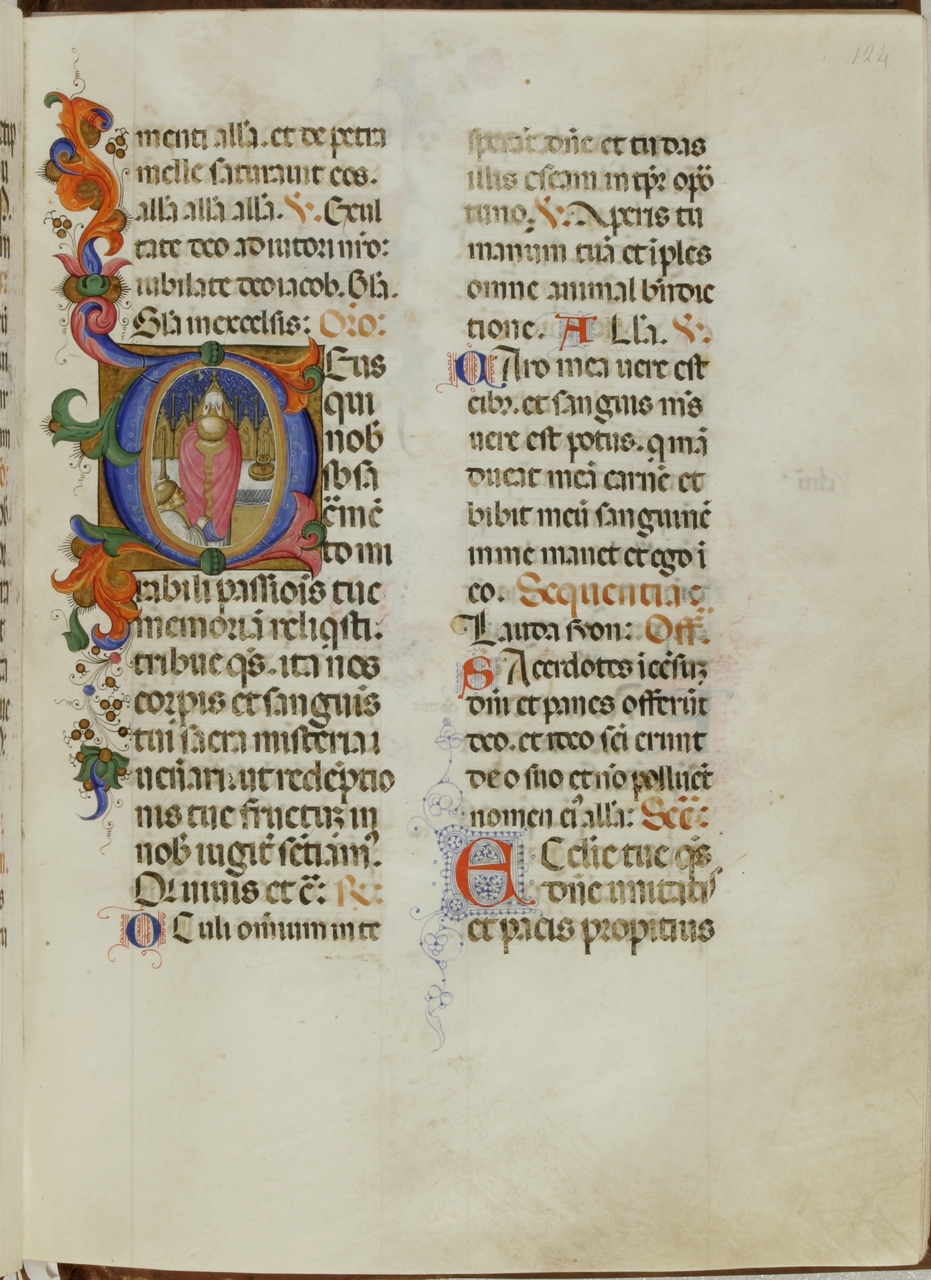 124
menti all'a. et de petra
melle saturauit eos.
all'a all'a all'a. V. Exul
tate deo adiutori nr̄o:
iubilate deo iacob. Gl'a.
Gl'a in excelsis: Orō:
DEus
qui
nob̄
sb sa
c̄mē
to mi
rabili passiois tue
memoriā reliqsti.
tribue q̄s. ita nos
corpis et sanguis
tui sacra misteria
uen̄ari. ut redēptio
nis tue fructuꝫ in
nob̄ iugit̄ sētiam9.
Qi uiuis et c̄: R:
OCuli omium in te
sperāt dn̄e et tu das
illis escam in tp̄r opō
tuno. V. Aperis tu
manum tuā et iples
omne animal bn̄dic
tione. ALl'a. V.
CAro mea uere est
cib9. et sanguis m̄s
uere est potus. q mā
ducat meā carnē et
bibit meū sanguinē
in me manet et ego ī
eo. Sequentia
Lauda syon: Off.
SAcerdotes īcēsuꝫ
dn̄i et panes offerūt
deo. et ideo sc̄i erunt
deo suo et nō polluēt
nomen ei9 all'a: Sec̄:
ECclīe tue q̄s
dn̄e unitatis
et pacis propitius